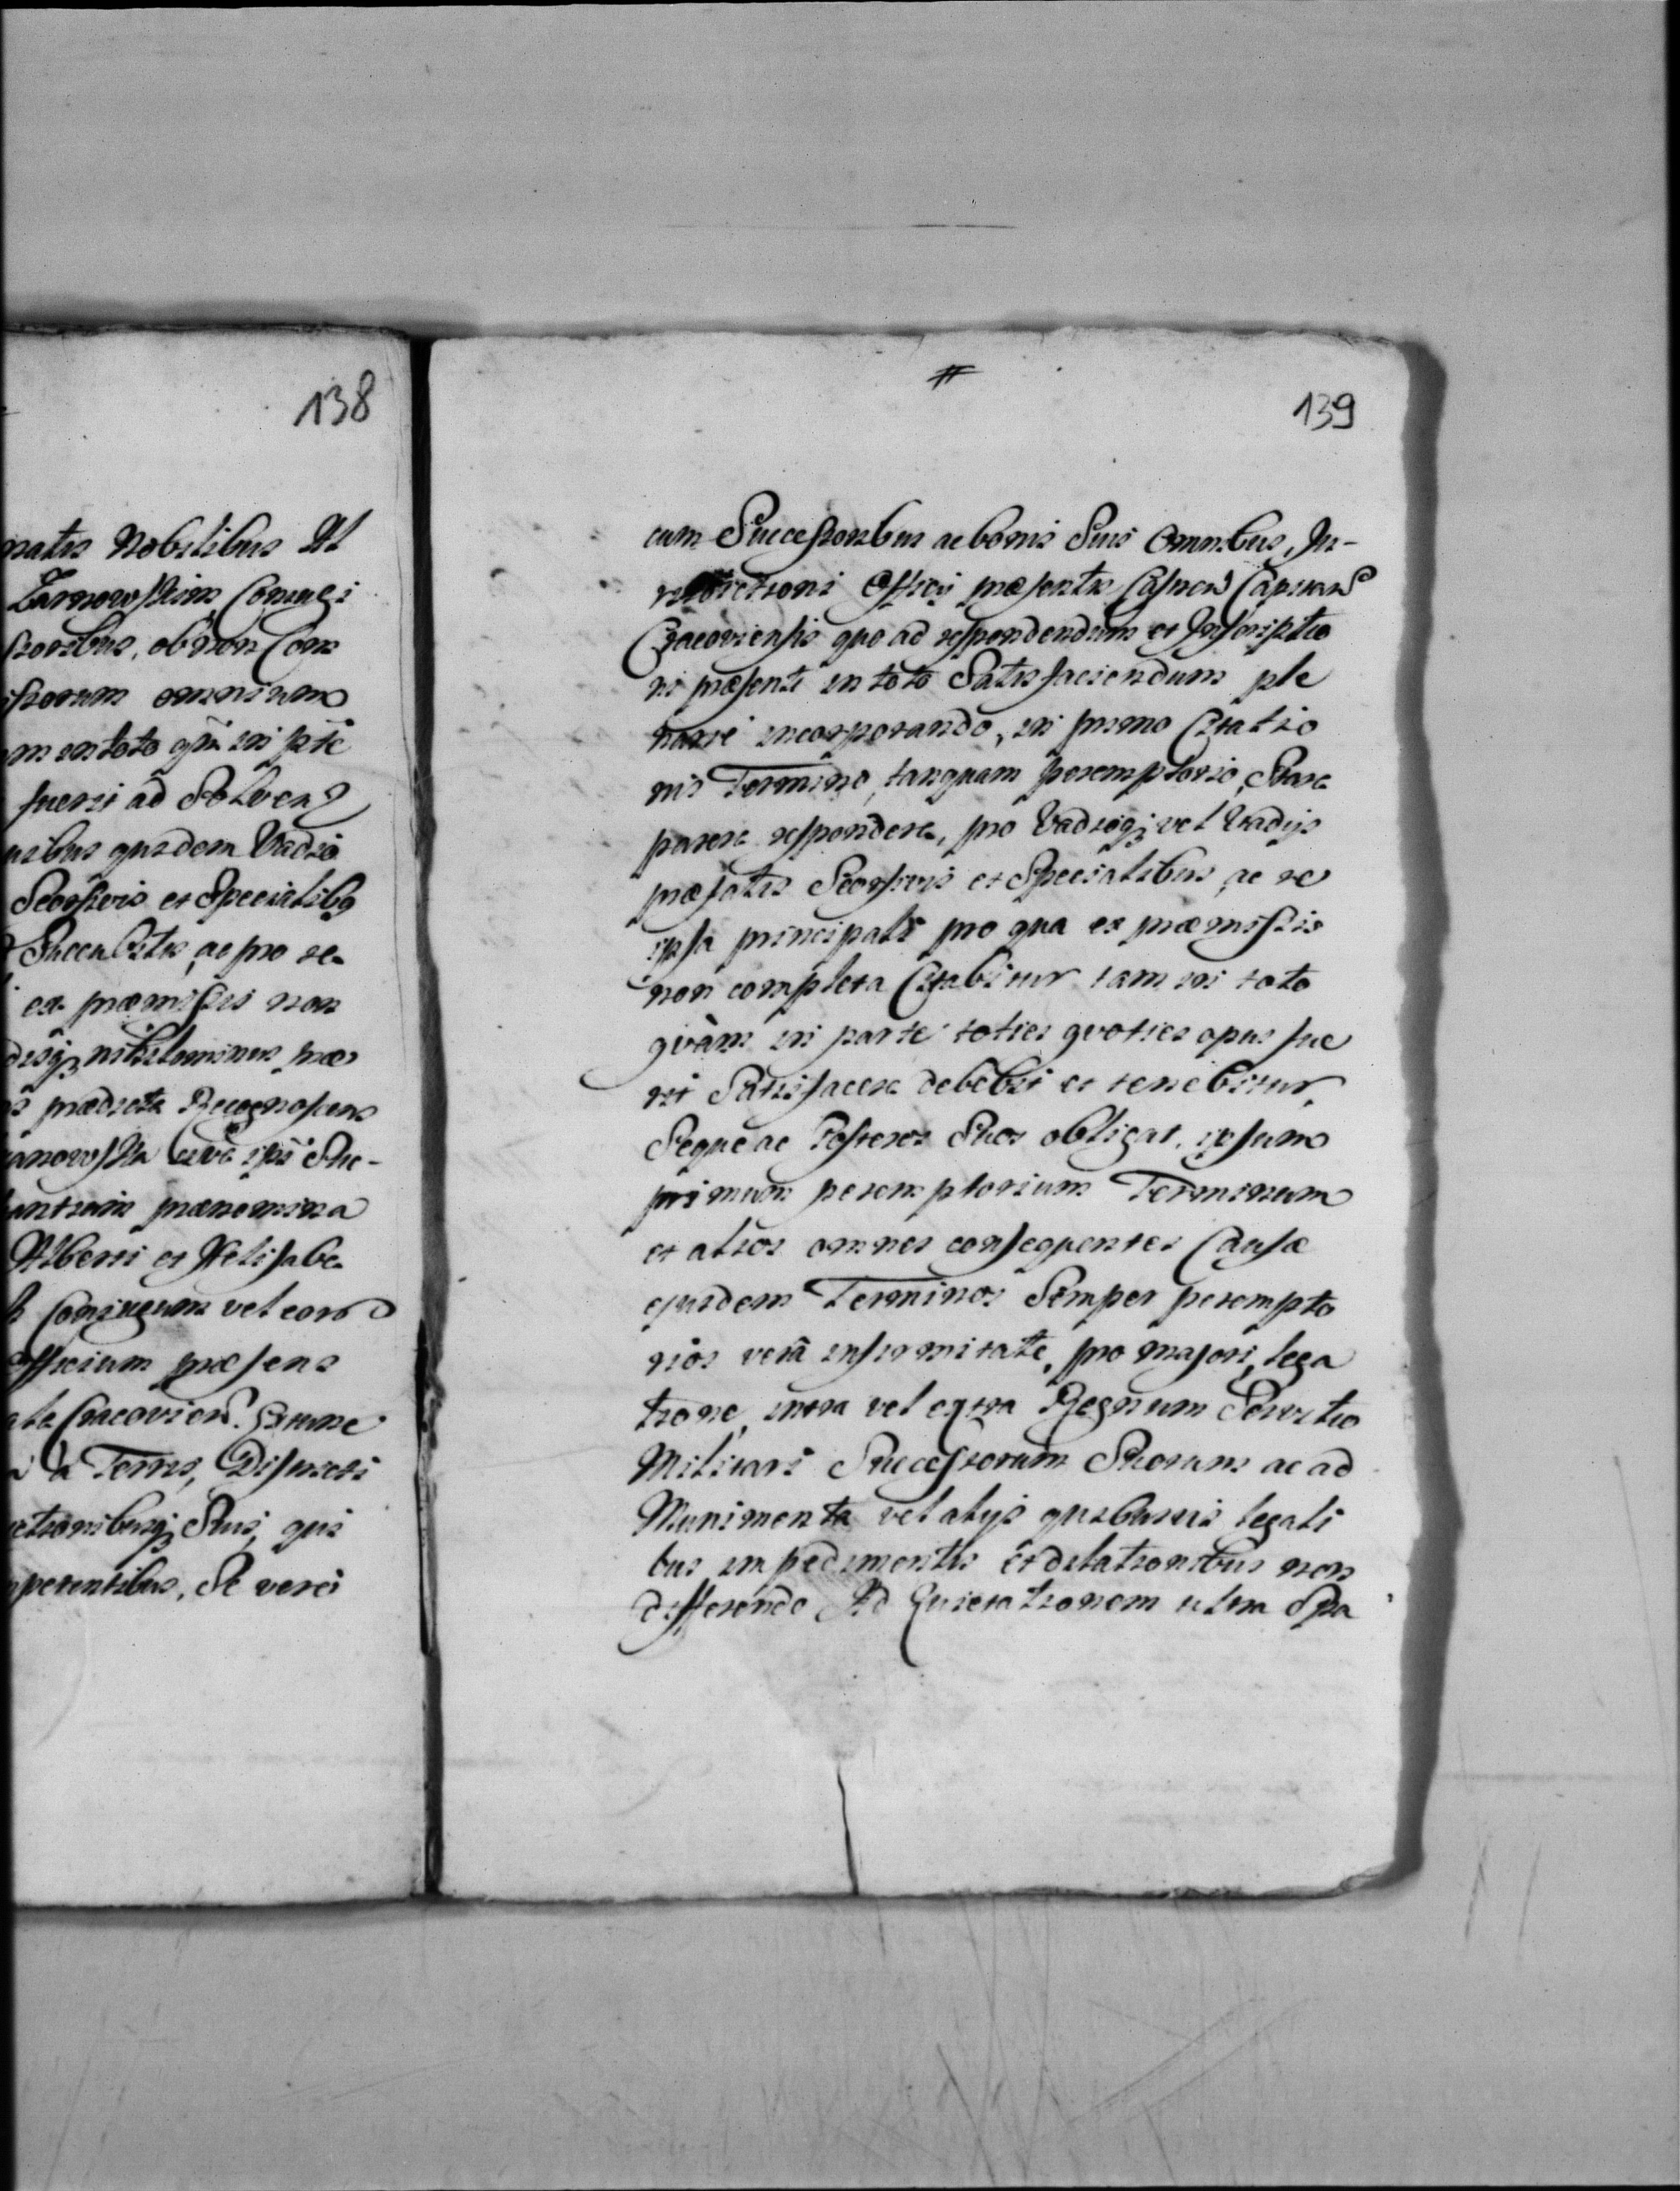 138
natis Nobilibus Al
Zarnowskim Conugi
ssoribus, ob non Com
issorum omnium
m in toto quam in pte
fueri ad Solven
uribus quidem Vadio
Seorsivis et Specialibq
Succubitis, ac pro re
ex praemissis non
disq nihilominus prae
praedicta Recognoscens
anowska
antium praenomina
Alberti et Helisabe
Conjugum vel eoru
officium praesens
Cracovien. Extunc
a Terris, Districti
ctionibusq Suis, qui
petentibus, Se verei
#
139
cum Successoribus ac bonis Suis Omnibus, Ju-
risdictioni Officij praesentis Castren Capitan
Cracoviensis quo ad respondendum et Inscriptio
ni praesenti in toto Satisfaciendum ple
narie incorporando, in primo Citatio
nis Termino, tanquam peremptorio, Stare
parere respondere, pro Vadioq vel Vadijs
praefatis Seorsivis et Specialibus, ac re
ipsa principali pro qua ex praemissis
non completa Citabitur tam in toto
quàm in parte toties quoties opus fue
rit Satisfacere debebit et tenebitur,
Seque ac Posteros Suos obligat, ipsum
primum peremptorium Terminum
et alios omnes consequentes Causae
ejusdem Terminos Semper perempto
rios verâ infirmitate, pro majori, lega
tione, intra vel extra Regnum Servitio
Militari Successorum Suorum ac ad
Munimenta vel alijs quibusvis legali
bus impedimentis et dilationibus non
differendo Ad Quietationem ultra Spa